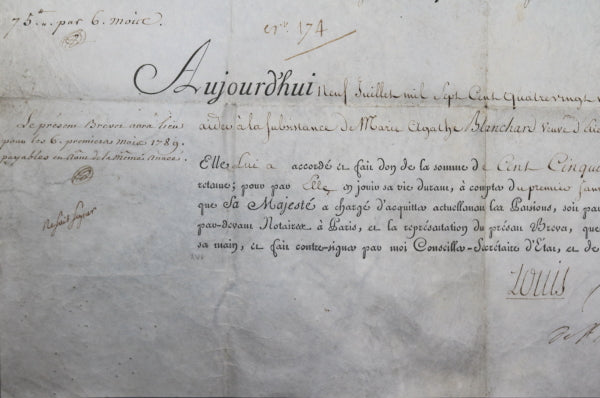 75ᵗᵗ. par 6. mois.
174
Aujourd'hui Neuf Juillet mil Sept Cent Quatre vingt
aider à la subsistance de Marie Agathe Blanchar veuve d'
Le présent Brevet aura lieu
pour les 6. premiers mois 1789.
payables en de la même Année.
Elle Lui a accordé et fait don de la somme de Cent Cinqu
retenue; pour par Elle en jouir sa vie durant, à compter du premier Jan
que Sa Majesté a chargé d'acquitter actuellement les Pensions, soit pa
par-devant Notaires à Paris, et la représentation du présent Brevet, que
sa main, et fait contre-signer par moi Conseiller-Secrétaire d'Etat, et de
Louis